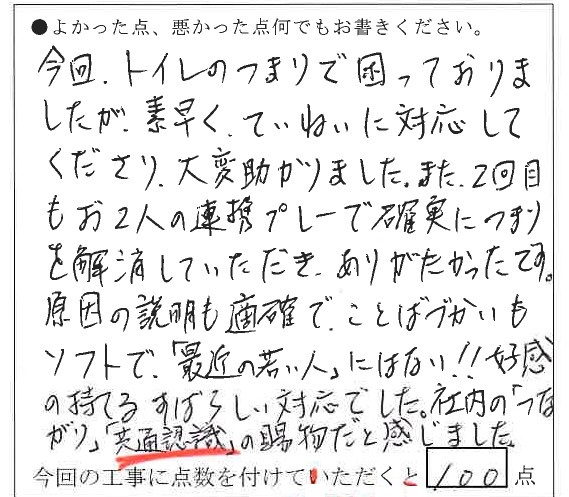 ●よかった点、悪かった点何でもお書きください。
今回、トイレのつまりで困っておりま
したが、素早く、ていねいに対応して
くださり、大変助かりました。また、2回目
もお2人の連携プレーで確実につまり
を解消していただき、ありがたかったです。
原因の説明も適確で、ことばづかいも
ソフトで、「最近の若い人」にはない!!好感
の持てるすばらしい対応でした。社内の「つな
がり」「共通認識」の賜物だと感じました。
今回の工事に点数を付けていただくと 100 点